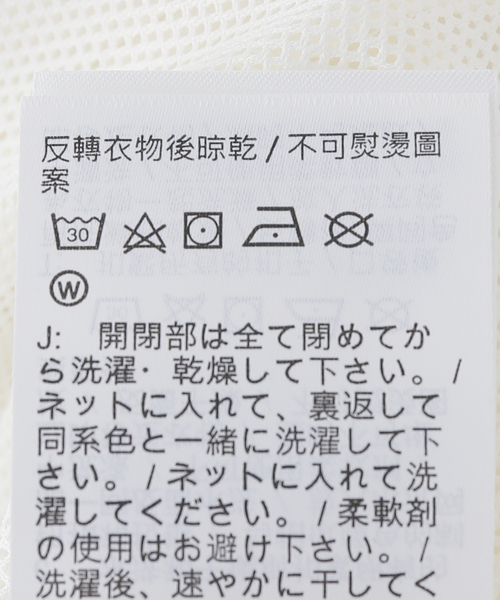 反轉衣物後晾乾 / 不可熨燙圖
案
30
W
J: 開閉部は全て閉めてか
ら洗濯・乾燥して下さい。 /
ネットに入れて、裏返して
同系色と一緒に洗濯して下
さい。 / ネットに入れて洗
濯してください。 / 柔軟剤
の使用はお避け下さい。 /
洗濯後、速やかに干してく